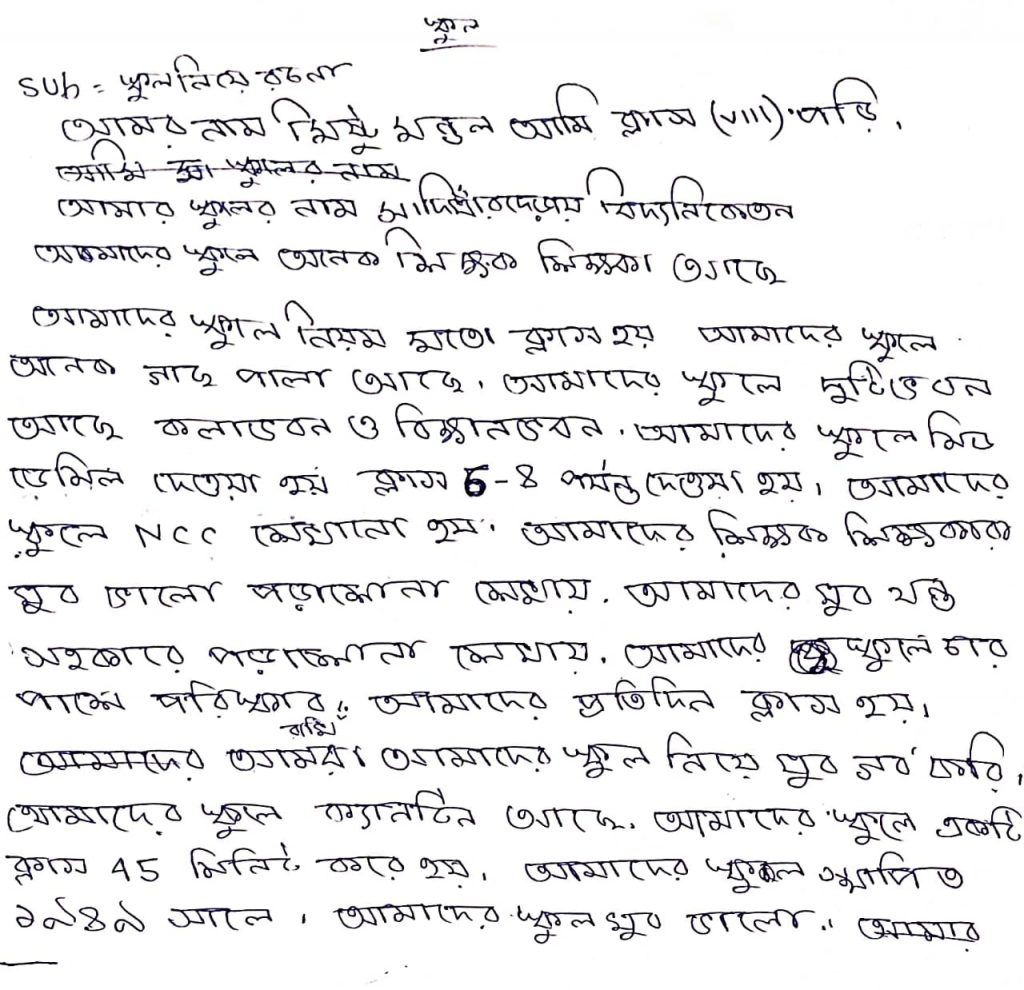 স্কুল
Sub = স্কুল নিয়ে রচনা
আমর নাম মিষ্টু মন্ডল আমি ক্লাস (VIII) পড়ি.
আমি স্কুলের নাম
আমার স্কুলর নাম বিদ্যনিকেতন
আমাদের স্কুলে অনেক শিক্ষক শিক্ষকা আছে
আমাদের স্কুলে নিয়ম মতো ক্লাস হয় আমাদের স্কুলে
অনেক গাছ পালা আছে. আমাদের স্কুলে দুটি ভবন
আছে কলাভবন ও বিজ্ঞানভবন. আমাদের স্কুলে মিড
ডেমিল দেওয়া হয় ক্লাস 5-8 পর্যন্ত দেওয়া হয়. আমাদের
স্কুলে NCC শেখানো হয়. আমাদের শিক্ষক শিক্ষকারা
খুব ভালো পড়াশোনা শেখায়. আমাদের খুব যত্ন
সহকারে পড়াশোনা শেখায়. আমাদের স্কুলে চার
পাশে পরিষ্কার. আমাদের প্রতিদিন ক্লাস হয়.
আমাদের আমরা আমাদের স্কুল নিয়ে খুব গর্ব করি.
আমাদের স্কুলে ক্যানটিন আছে. আমাদের স্কুলে একটি
ক্লাস 45 মিনিট করে হয়. আমাদের স্কুল স্থাপিত
১৯৪৯ সালে. আমাদের স্কুল খুব ভালো. আমার